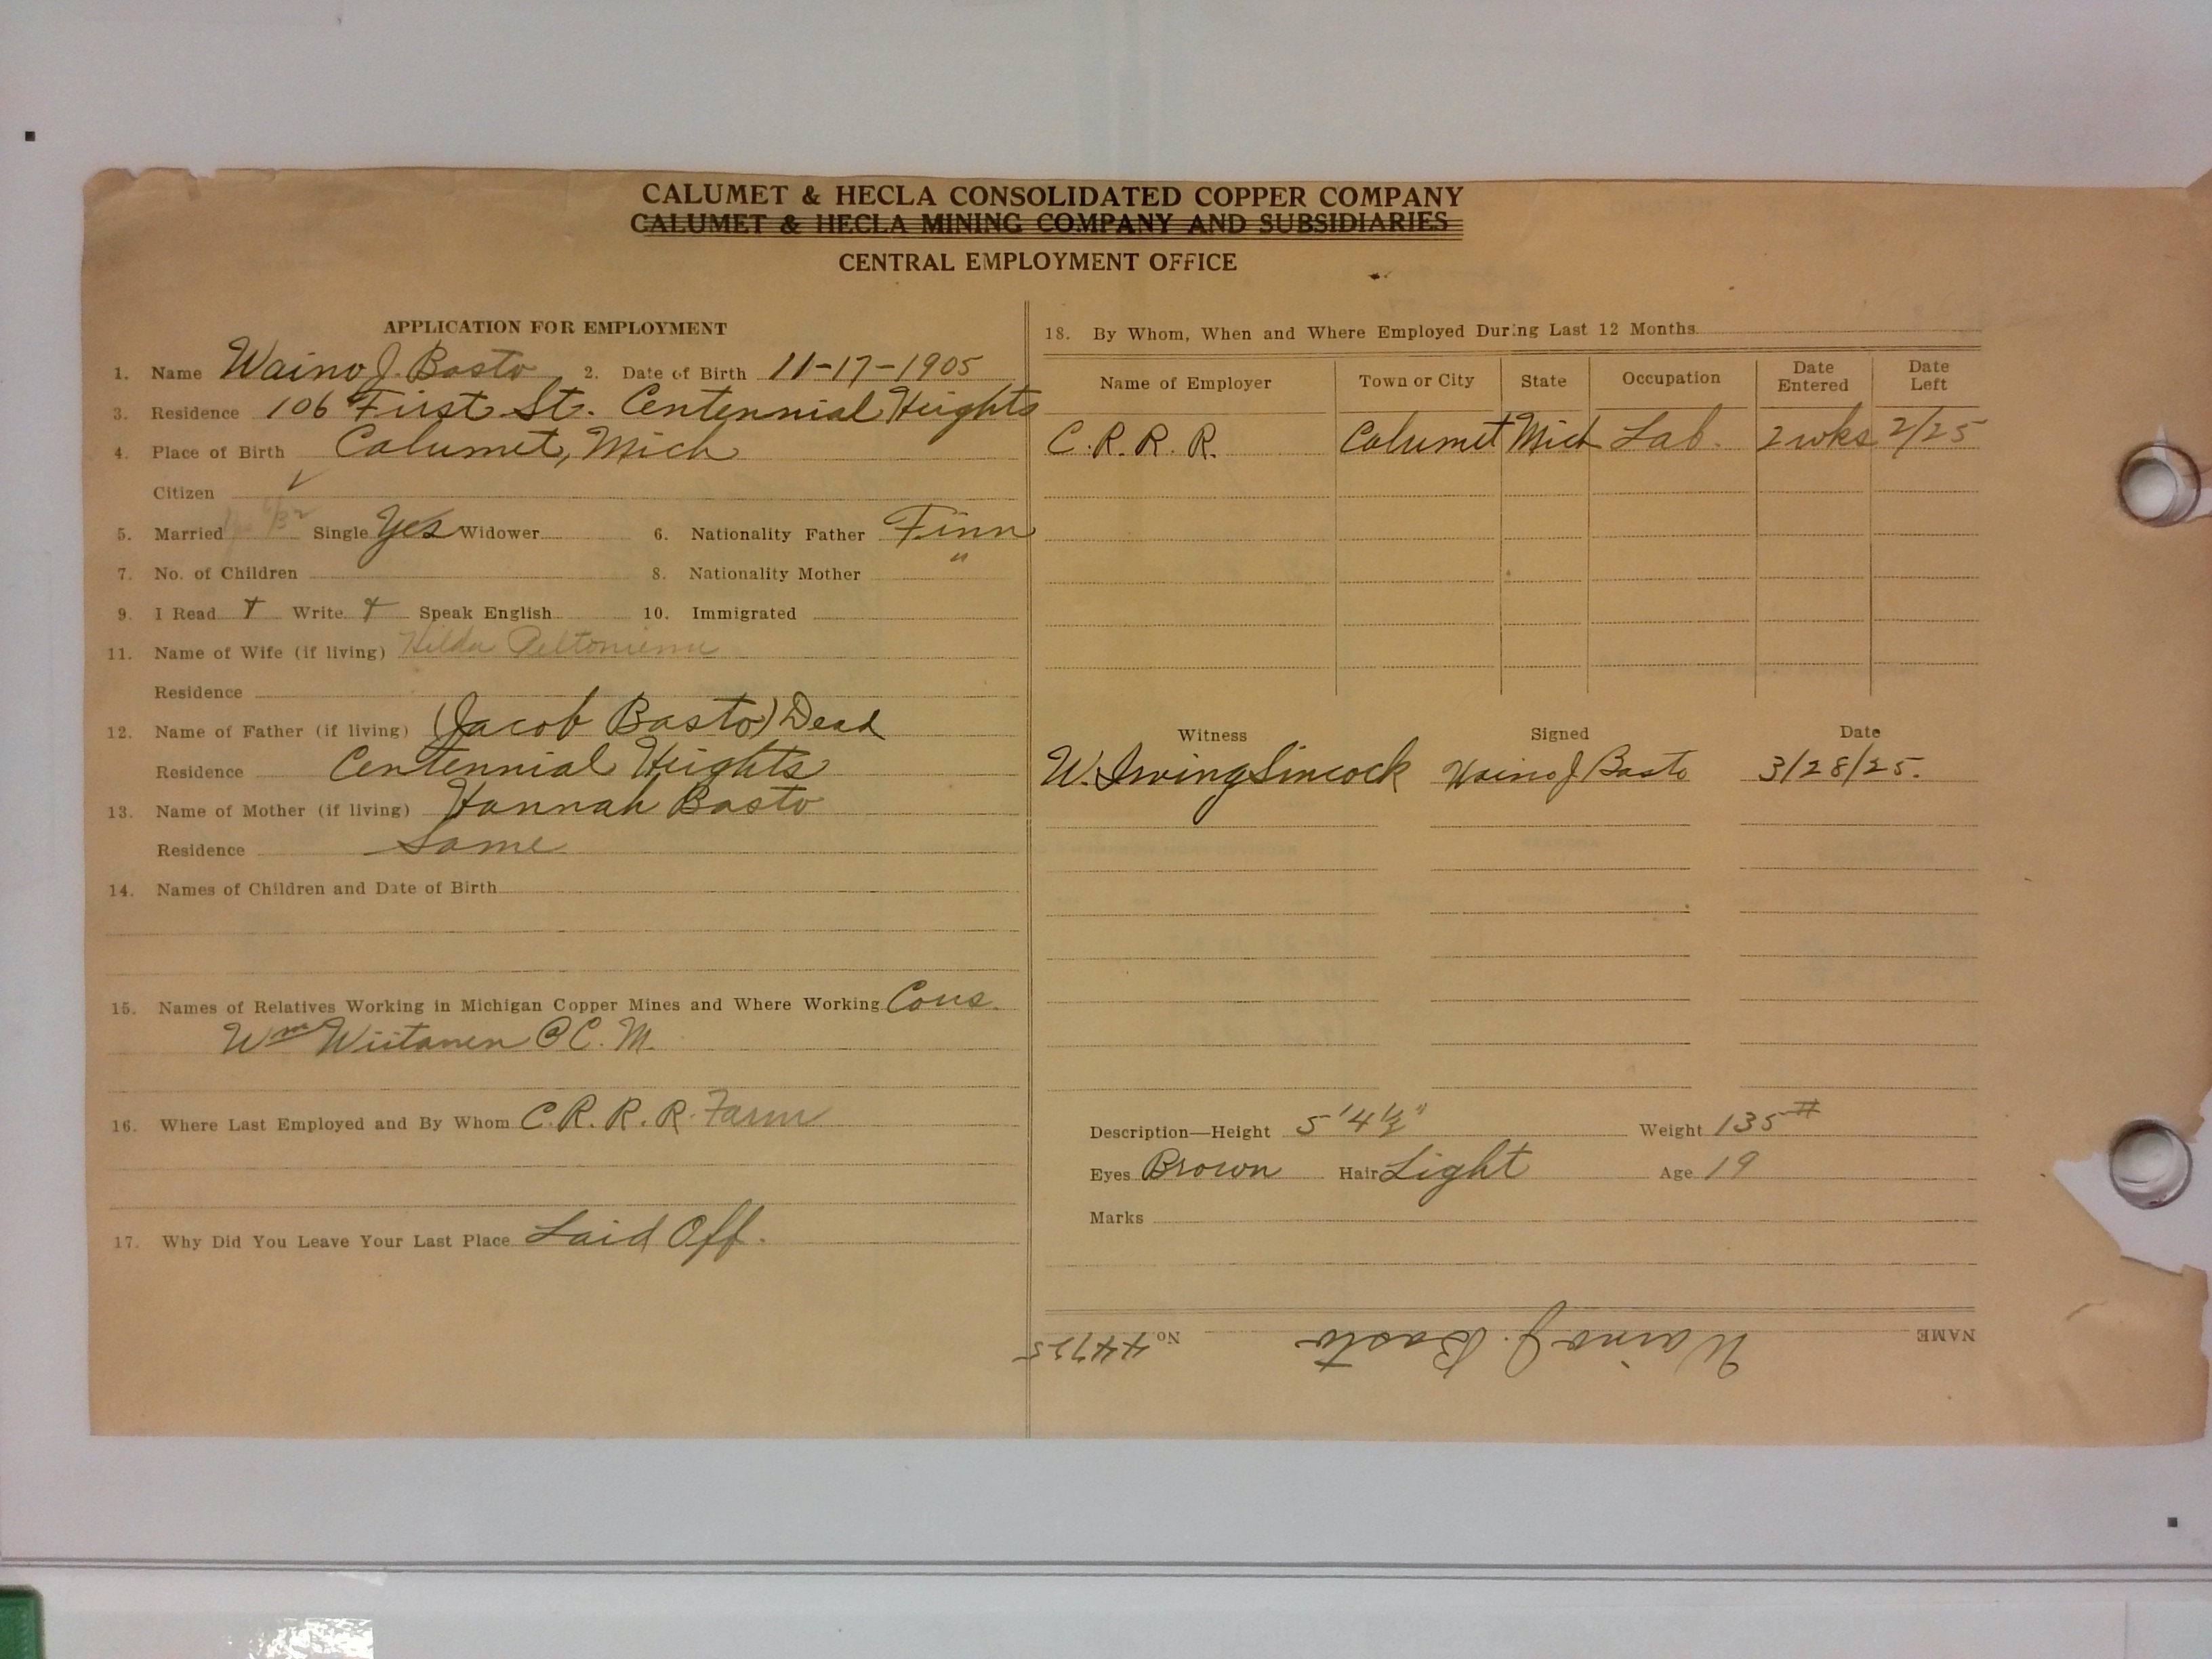 CALUMET & HECLA CONSOLIDATED COPPER COMPANY
CALUMET & HECLA MINING COMPANY AND SUBSIDIARIES
CENTRAL EMPLOYMENT OFFICE
APPLICATION FOR EMPLOYMENT
1. Name Waino J. Basto 2. Date of Birth 11-17-1905
3. Residence 106 First St. Centennial Heights
4. Place of Birth Calumet, Mich
Citizen ✓
5. Married Single Yes Widower 6. Nationality Father Finn
7. No. of Children 8. Nationality Mother "
9. I Read + Write + Speak English 10. Immigrated
11. Name of Wife (if living) Hilda
Residence
12. Name of Father (if living) (Jacob Basto) Dead
Residence Centennial Heights
13. Name of Mother (if living) Hannah Basto
Residence Same
14. Names of Children and Date of Birth
15. Names of Relatives Working in Michigan Copper Mines and Where Working Cous.
Wm Wiitanen @ C. M.
16. Where Last Employed and By Whom C. R. R. R. Farm
17. Why Did You Leave Your Last Place Laid Off.
18. By Whom, When and Where Employed During Last 12 Months
Name of Employer Town or City State Occupation Date Entered Date Left
C. R. R. R. Calumet Mich Lab. 2 wks 2/25
Witness Signed Date
W. Irving Sincock Waino J Basto 3/28/25.
Description—Height 5' 4 1/2" Weight 135 #
Eyes Brown Hair Light Age 19
Marks
NAME Waino J. Basto No. 44725